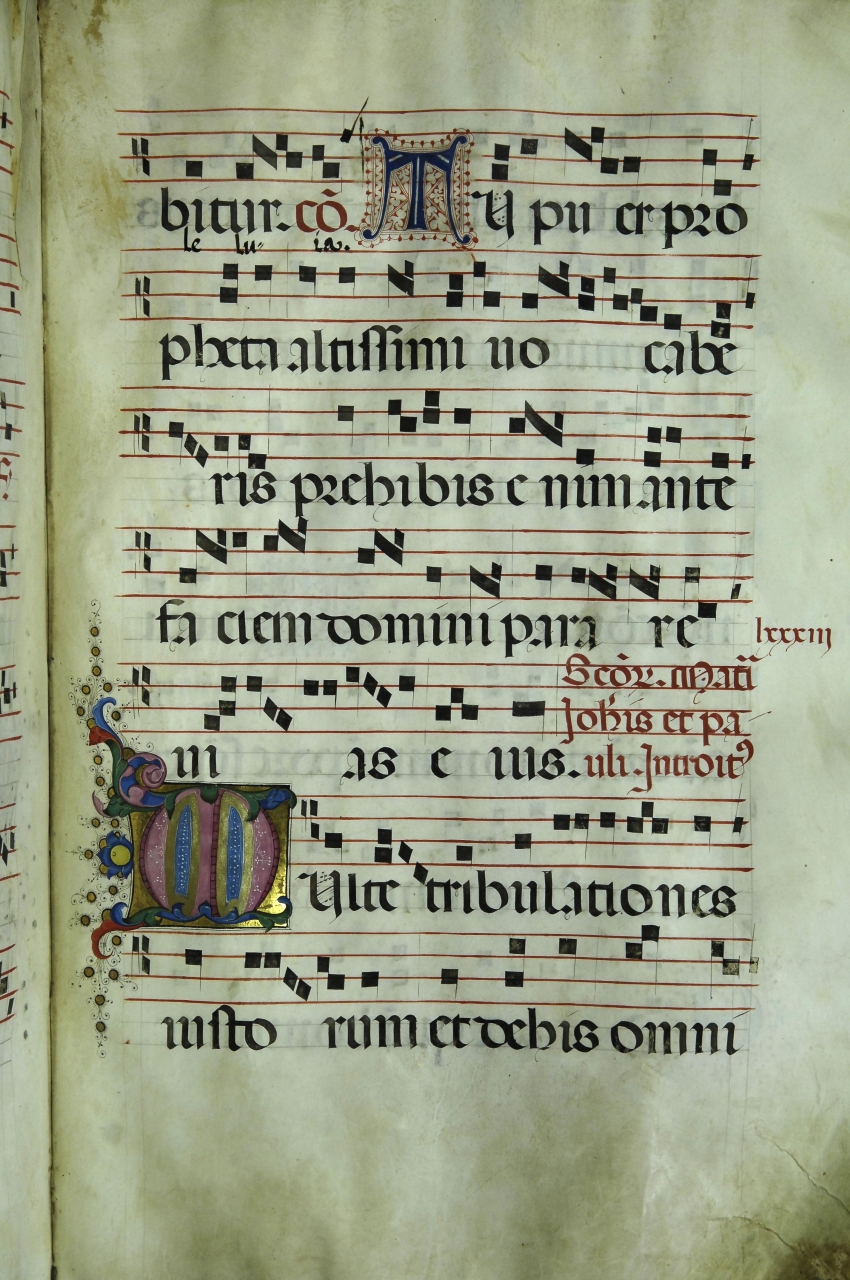 bitur. cō. TU pu er pro
le lu ia.
pheta altissimi uo cabe
ris prehibis e nim ante
fa ciem domini para re
lxxxiij
Scōꝝ. Mati
ui as e ius.
Johīs et pa
uli. Introitꝰ
MUlte tribulationes
iusto rum et debis omni